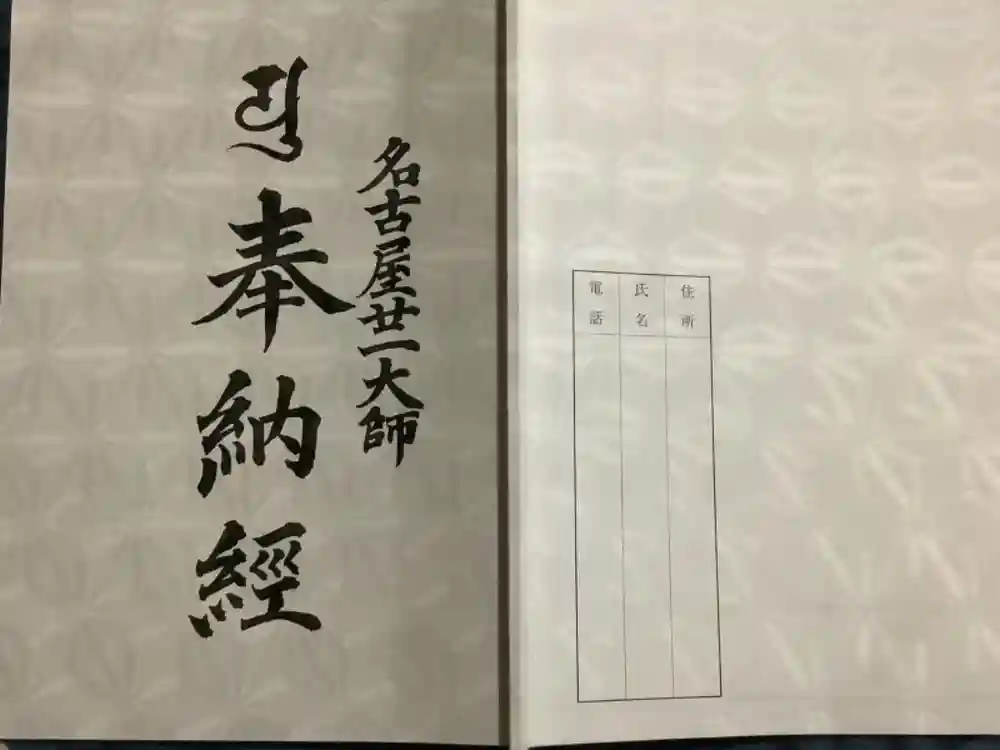 名古屋廿一大師
奉納經
住所
氏名
電話